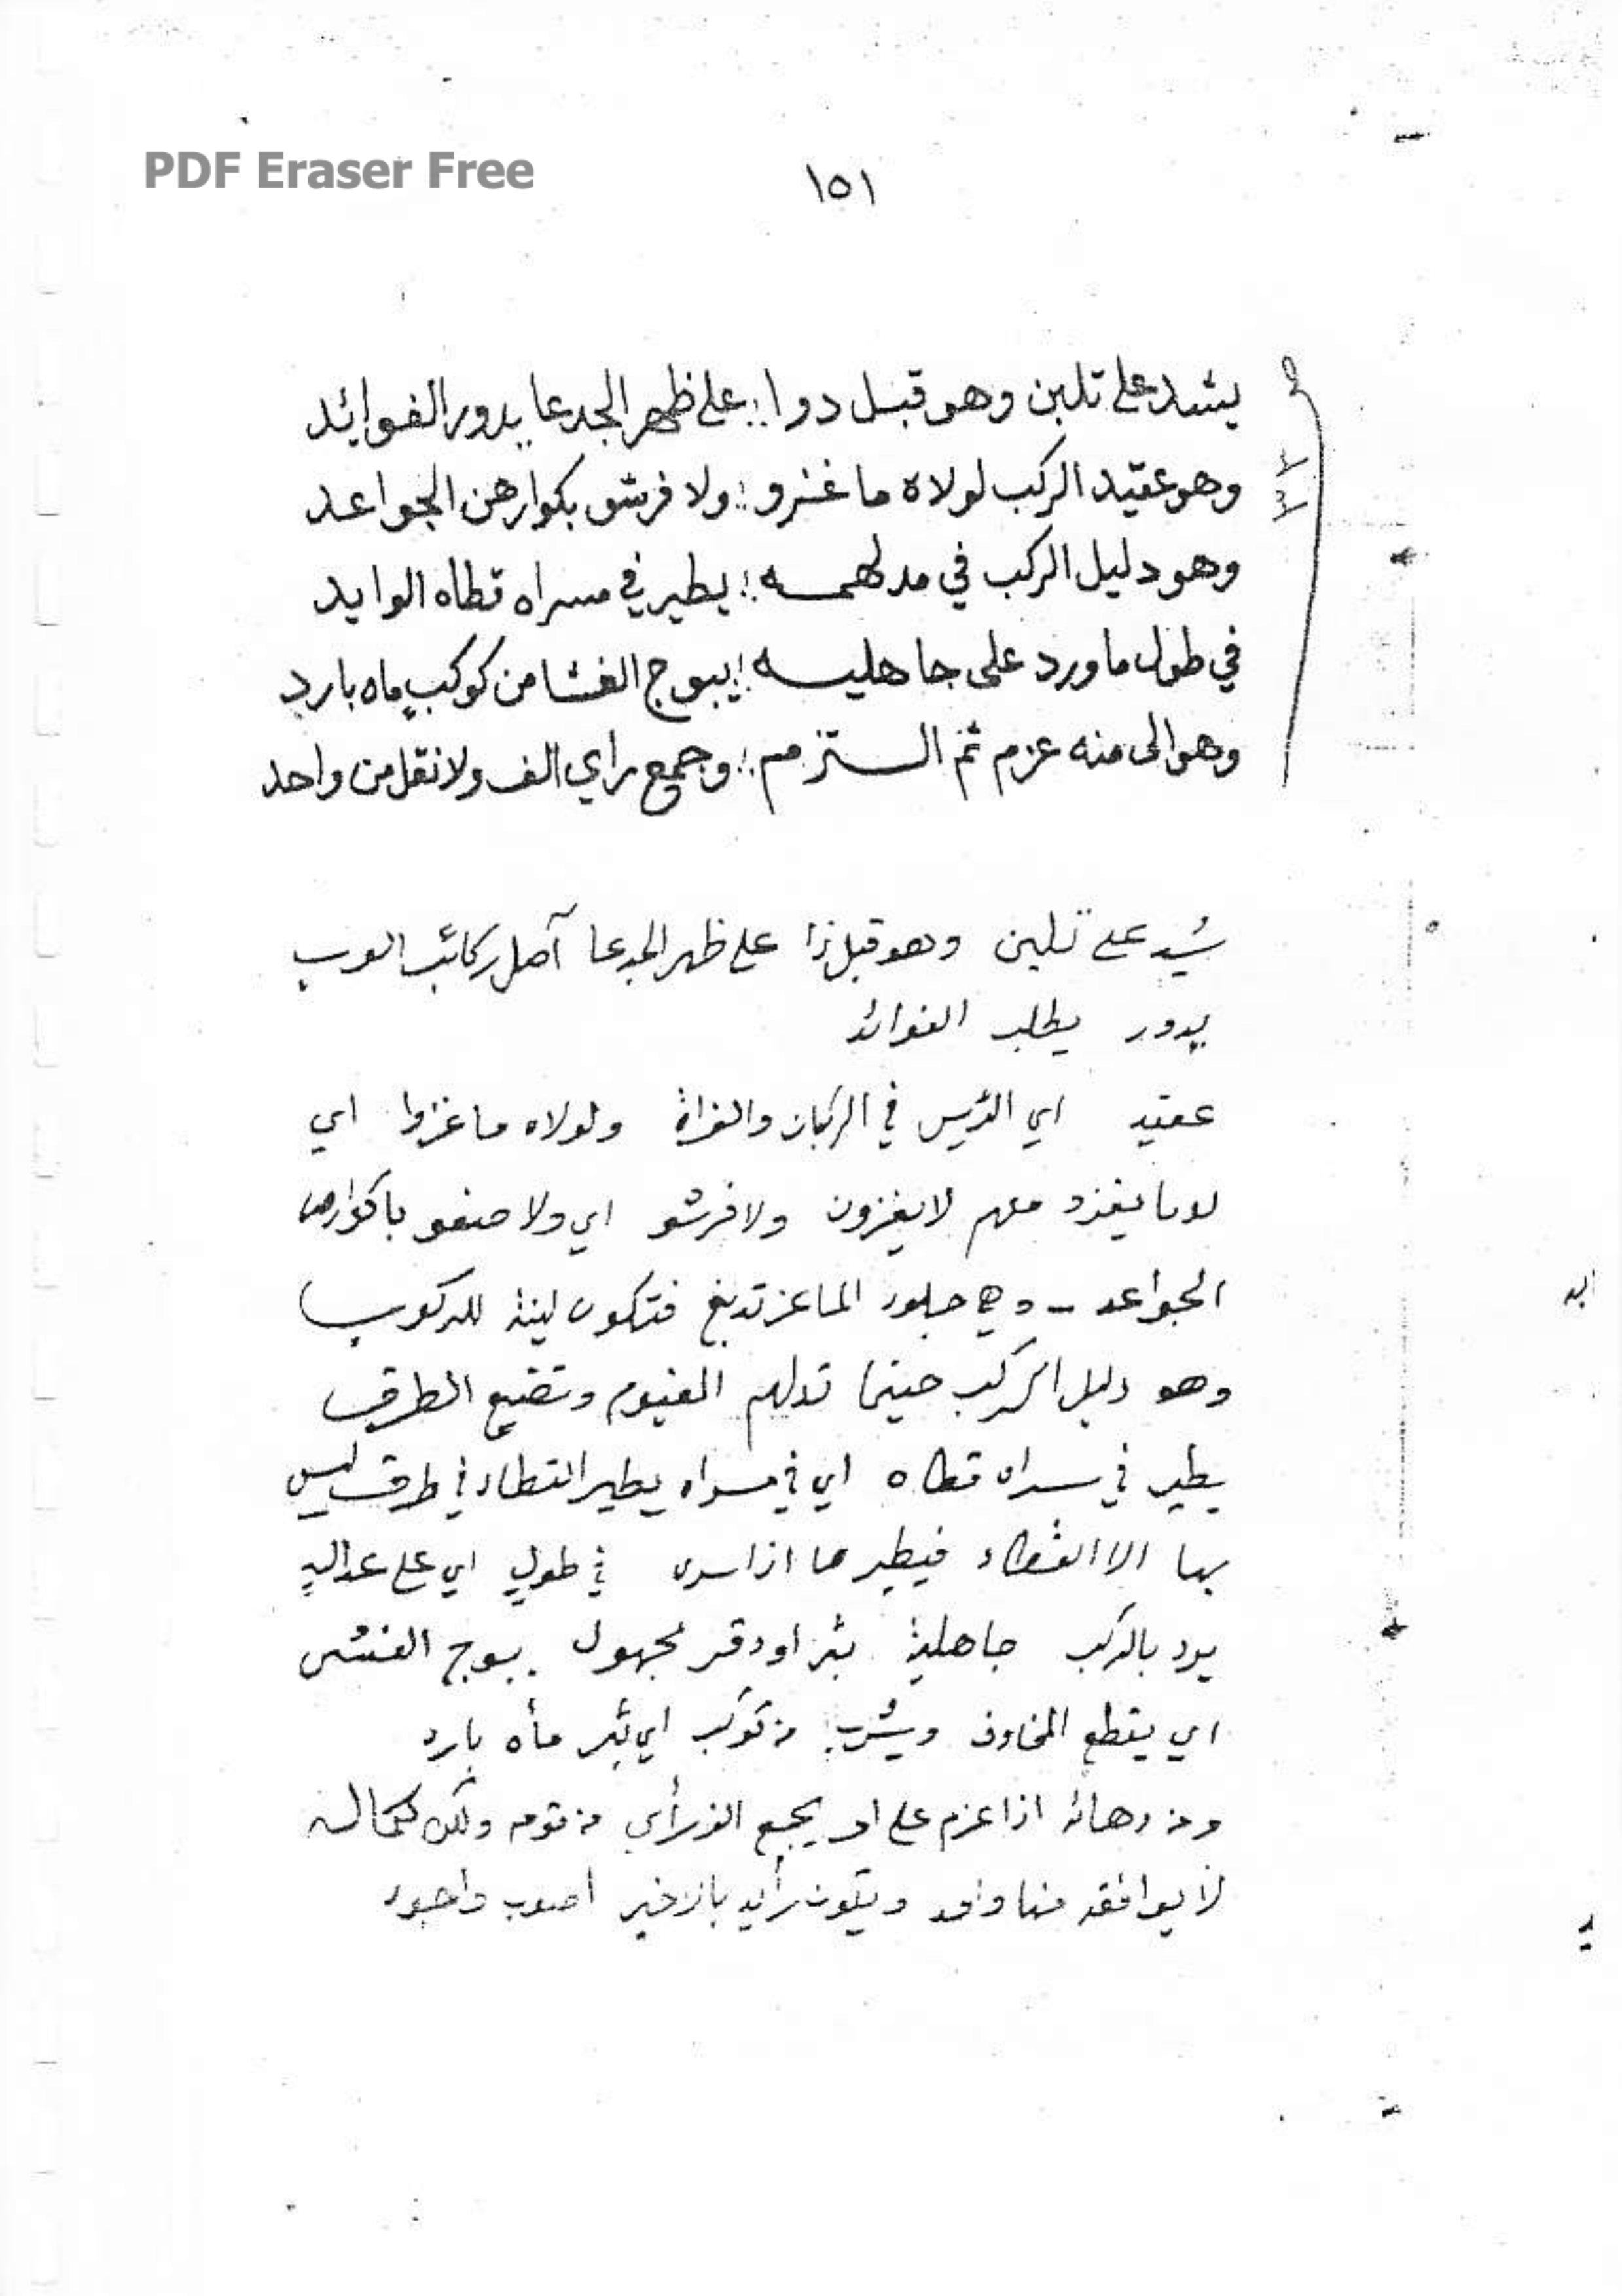 PDF Eraser Free
١٥١
يشد على تلين وهو قبل دوا :: على ظهر الجدعا يدور الفوائد
وهو عقيد الركب لولاه ما غزو :: ولا فرشو بكوارهن الجواعد
وهو دليل الركب في مدلهمه :: يطير في مسراه قطاه الوايد
في طول ما ورد على جاهليه :: يبوج الغشا من كوكب ماه بارد
وهو الى منه عزم ثم الستزم :: وجمع راي الف ولا نقل من واحد
على تلين وهو قبل ذا على ظهر الجدعا آصل ركائب العرب
يدور يطلب الفوائد
عقيد اي الرئيس في الركبان والغزاة ولولاه ما غزوا اي
لا يغزون ولا فرشو اي ولا صنعو باكوارها
الجواعد - وهي جلود الماعز تدبغ فتكون لينة للركوب
وهو دليل الركب حينما تدلهم الغيوم وتضيع الطرق
يطير في مسراه قطاه اي في مسراه يطير القطاء في طرق ليس
بها الا القطاء فيطيرها اذا سرى في طول اي على
يرد بالركب جاهلية بئر او مجهول يبوج الغشى
اي يقطع المخاوف ويشرب من كوكب اي بئر مأه بارد
ومن دهائه اذا عزم على امر يجمع الف رأي من قومه ولكن
لا يوافقه منها واحد ويكون رأيه بالاخير اصوب واجود